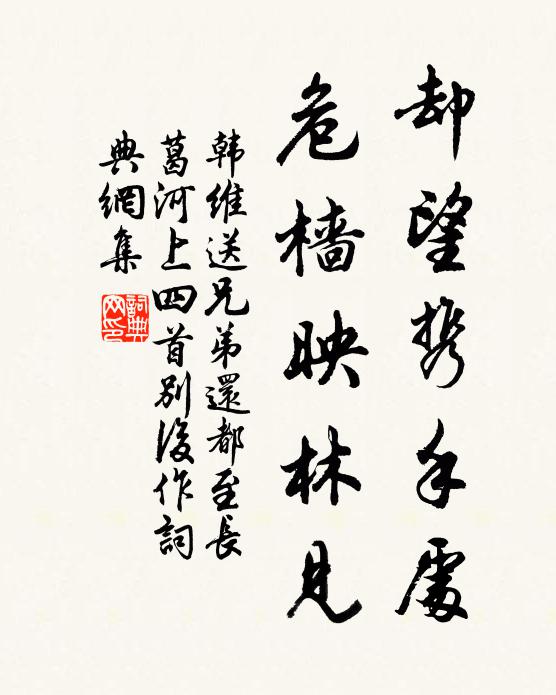 却望携手處
危檣映林見
韩維送兄弟還都至長
葛河上四首别後作詞
典網集
詞典网印